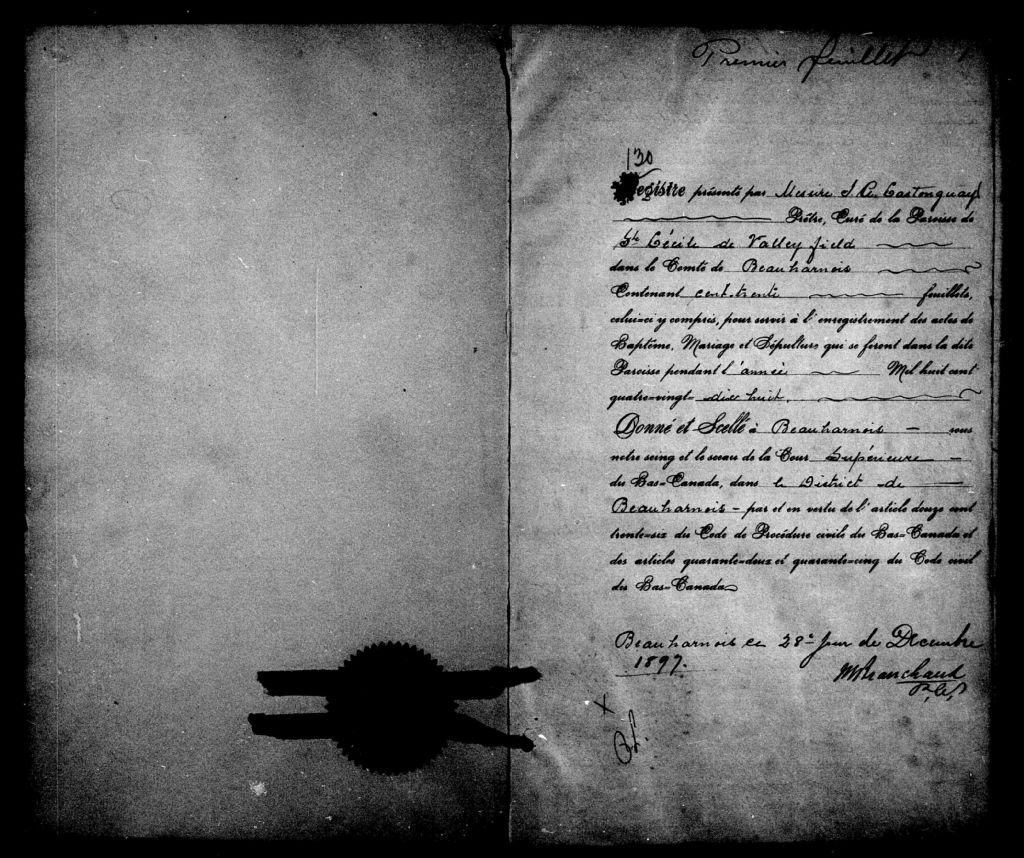 Premier feuillet
130
Registre présenté par Messire J. C. Castonguay
Prêtre, Curé de la Paroisse de
Ste Cécile de Valleyfield
dans le Comté de Beauharnois
Contenant cent-trente feuillets,
celui-ci y compris, pour servir à l'enregistrement des actes de
Baptême, Mariage et Sépulture qui se feront dans la dite
Paroisse pendant l'année Mil huit cent
quatre-vingt- dix huit.
Donné et Scellé à Beauharnois - sous
notre seing et le sceau de la Cour Supérieure -
du Bas-Canada, dans le District de
Beauharnois - par et en vertu de l'article douze cent
trente-six du Code de Procédure civile du Bas-Canada et
des articles quarante-deux et quarante-cinq du Code civil
du Bas-Canada
Beauharnois ce 28e Jour de Décembre
1897.
Branchaud
P.C.S.
X